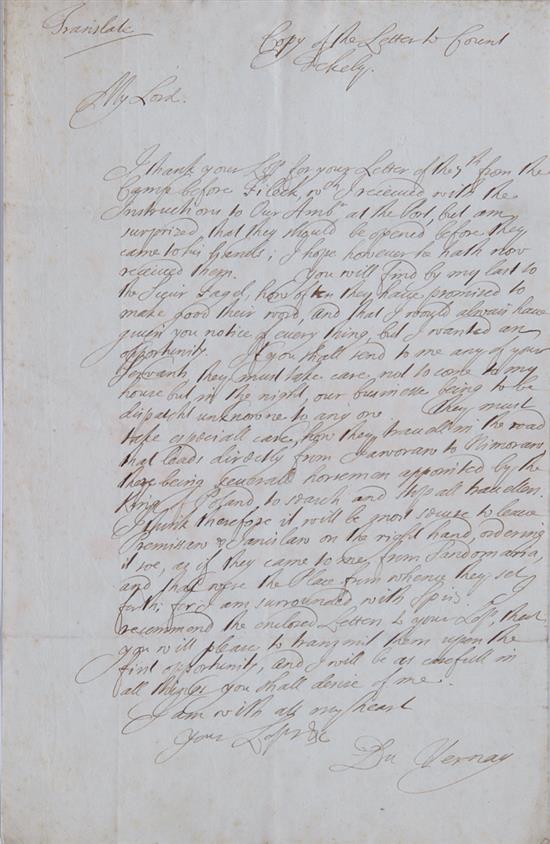 Translate
Copy of the Letter to Count
Tekely.
My Lord.
I thank your Lopp for your Letter of the 7th from the
Camp before Fileck, wch I received with the
Instructions to Our Ambr at the Port, but am
surprized, that they should be opened before they
came to his hands; I hope however he hath now
received them. You will find by my last to
the Sieur Fagel, how often they have promised to
make good their word, and that I would alwais have
given you notice of every thing, but I wanted an
opportunity. If you shall send to me any of your
Servants, they must take care, not to come to my
house but in the night, our business being to be
dispatcht unknowne to any one. They must
take especiall care, how they travell in the road
that leads directly from Jaworow to Nimorow
there being severall horsemen appointed by the
King of Poland to search and stop all travellers.
I think therefore it will be most secure to leave
Premislew & Janislaw on the right hand, ordering
it soe, as if they came to me from Sandomiria,
and that none the Place from whence they set
forth; for I am surrounded with Spies. I
recommend the enclosed Letters to your Lopp, that
you will please to transmit them upon the
first opportunity, and I will be as carefull in
all things you shall desire of me.
I am with all my heart
Your Lopps &c
Du Vernay